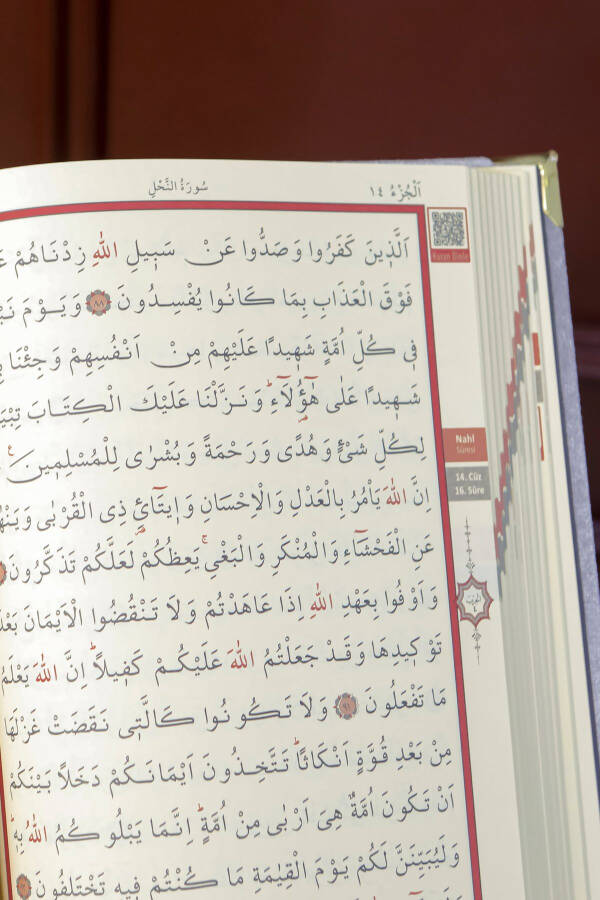 سُورَةُ النَّحْلِ
اَلْجُزْءُ ١٤
اَلَّذ۪ينَ كَفَرُوا وَصَدُّوا عَنْ سَب۪يلِ اللّٰهِ زِدْنَاهُمْ
فَوْقَ الْعَذَابِ بِمَا كَانُوا يُفْسِدُونَ ٨٨ وَيَوْمَ
ف۪ي كُلِّ اُمَّةٍ شَه۪يدًا عَلَيْهِمْ مِنْ اَنْفُسِهِمْ وَجِئْنَا
شَه۪يدًا عَلٰى هٰٓؤُ۬لَٓاءِۜ وَنَزَّلْنَا عَلَيْكَ الْكِتَابَ
لِكُلِّ شَيْءٍ وَهُدًى وَرَحْمَةً وَبُشْرٰى لِلْمُسْلِم۪ينَ۟
اِنَّ اللّٰهَ يَأْمُرُ بِالْعَدْلِ وَالْاِحْسَانِ وَا۪يتَٓائِ ذِي الْقُرْبٰى
عَنِ الْفَحْشَٓاءِ وَالْمُنْكَرِ وَالْبَغْيِۚ يَعِظُكُمْ لَعَلَّكُمْ تَذَكَّرُونَ
وَاَوْفُوا بِعَهْدِ اللّٰهِ اِذَا عَاهَدْتُمْ وَلَا تَنْقُضُوا الْاَيْمَانَ
تَوْك۪يدِهَا وَقَدْ جَعَلْتُمُ اللّٰهَ عَلَيْكُمْ كَف۪يلًاۜ اِنَّ اللّٰهَ يَعْلَمُ
مَا تَفْعَلُونَ ٩١ وَلَا تَكُونُوا كَالَّت۪ي نَقَضَتْ غَزْلَهَا
مِنْ بَعْدِ قُوَّةٍ اَنْكَاثًاۜ تَتَّخِذُونَ اَيْمَانَكُمْ دَخَلًا بَيْنَكُمْ
اَنْ تَكُونَ اُمَّةٌ هِيَ اَرْبٰى مِنْ اُمَّةٍۜ اِنَّمَا يَبْلُوكُمُ اللّٰهُ بِه۪ۜ
وَلَيُبَيِّنَنَّ لَكُمْ يَوْمَ الْقِيٰمَةِ مَا كُنْتُمْ ف۪يهِ تَخْتَلِفُونَ
Nahl
Sûresi
14. Cüz
16. Sûre